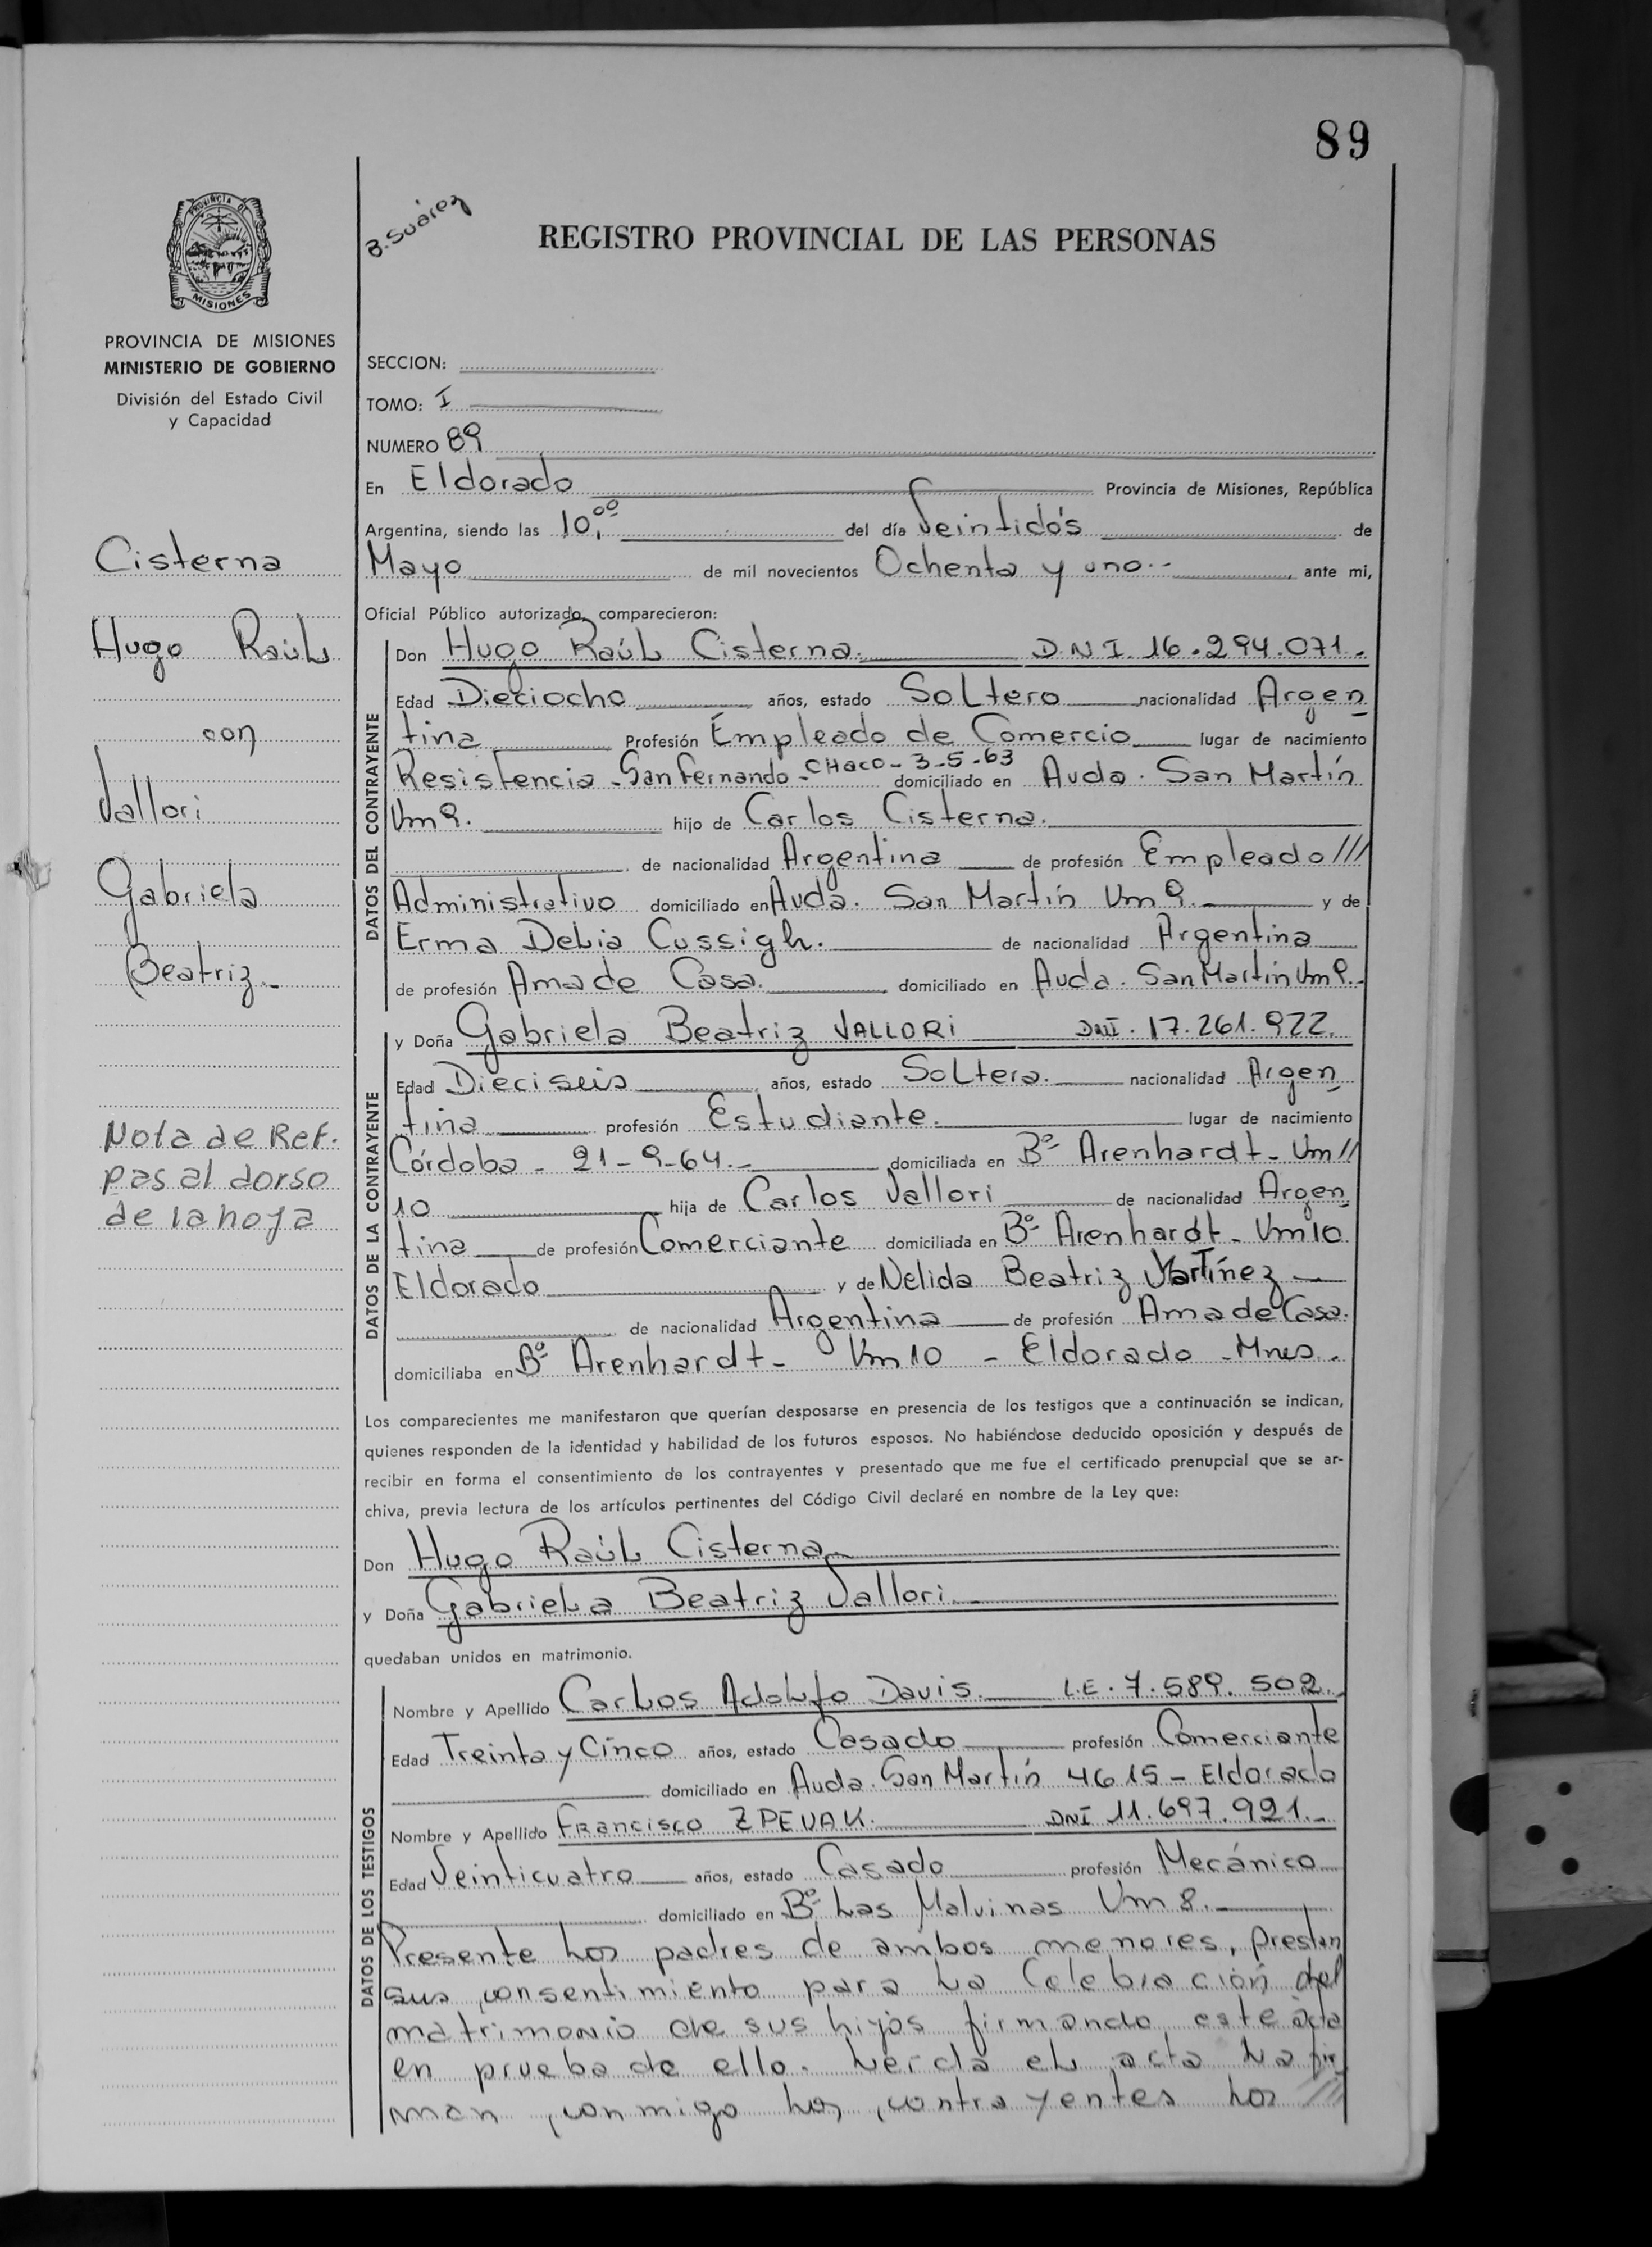 89
B. Suárez
REGISTRO PROVINCIAL DE LAS PERSONAS
PROVINCIA DE
MISIONES
PROVINCIA DE MISIONES
MINISTERIO DE GOBIERNO
División del Estado Civil
y Capacidad
Cisterna
Hugo Raúl
con
Vallori
Gabriela
Beatriz.-
Nota de Ref.
pas al dorso
de la hoja
SECCION:
TOMO: I
NUMERO 89
En Eldorado Provincia de Misiones, República
Argentina, siendo las 10,00 del día Veintidós de
Mayo de mil novecientos Ochenta y uno.- ante mi,
Oficial Público autorizado, comparecieron:
DATOS DEL CONTRAYENTE
Don Hugo Raúl Cisterna. DNI. 16.294.071.
Edad Dieciocho años, estado Soltero nacionalidad Argen
tina Profesión Empleado de Comercio lugar de nacimiento
Resistencia - San Fernando - CHaco - 3-5-63 domiciliado en Avda. San Martín
Km 9. hijo de Carlos Cisterna.
de nacionalidad Argentina de profesión Empleado ///
Administrativo domiciliado en Avda. San Martín Km 9. y de
Erma Delia Cussigh. de nacionalidad Argentina
de profesión Ama de Casa. domiciliado en Avda. San Martín Km 9.-
DATOS DE LA CONTRAYENTE
y Doña Gabriela Beatriz VALLORi DNI. 17.261.922.
Edad Dieciseis años, estado Soltera. nacionalidad Argen
tina profesión Estudiante. lugar de nacimiento
Córdoba - 21-9-64.- domiciliada en Bº Arenhardt - Km //
10 hija de Carlos Vallori de nacionalidad Argen
tina de profesión Comerciante domiciliada en Bº Arenhardt - Km 10
Eldorado y de Nelida Beatriz Martínez
de nacionalidad Argentina de profesión Ama de Casa.
domiciliaba en Bº Arenhardt - Km 10 - Eldorado - Mnes.
Los comparecientes me manifestaron que querían desposarse en presencia de los testigos que a continuación se indican,
quienes responden de la identidad y habilidad de los futuros esposos. No habiéndose deducido oposición y después de
recibir en forma el consentimiento de los contrayentes y presentado que me fue el certificado prenupcial que se ar-
chiva, previa lectura de los artículos pertinentes del Código Civil declaré en nombre de la Ley que:
Don Hugo Raúl Cisterna
y Doña Gabriela Beatriz Vallori
quedaban unidos en matrimonio.
DATOS DE LOS TESTIGOS
Nombre y Apellido Carlos Adolfo Davis. L.E. 7.589.502.
Edad Treinta y Cinco años, estado Casado profesión Comerciante
domiciliado en Avda. San Martín 4615 - Eldorado
Nombre y Apellido Francisco ZPEVAK. DNI 11.697.921.-
Edad Veinticuatro años, estado Casado profesión Mecánico
domiciliado en Bº Las Malvinas Km 8.
Presente los padres de ambos menores, prestan
sus consentimiento para la Celebración del
matrimonio de sus hijos firmando este acta
en prueba de ello. Leída el acta la fir
man conmigo los contrayentes los ///